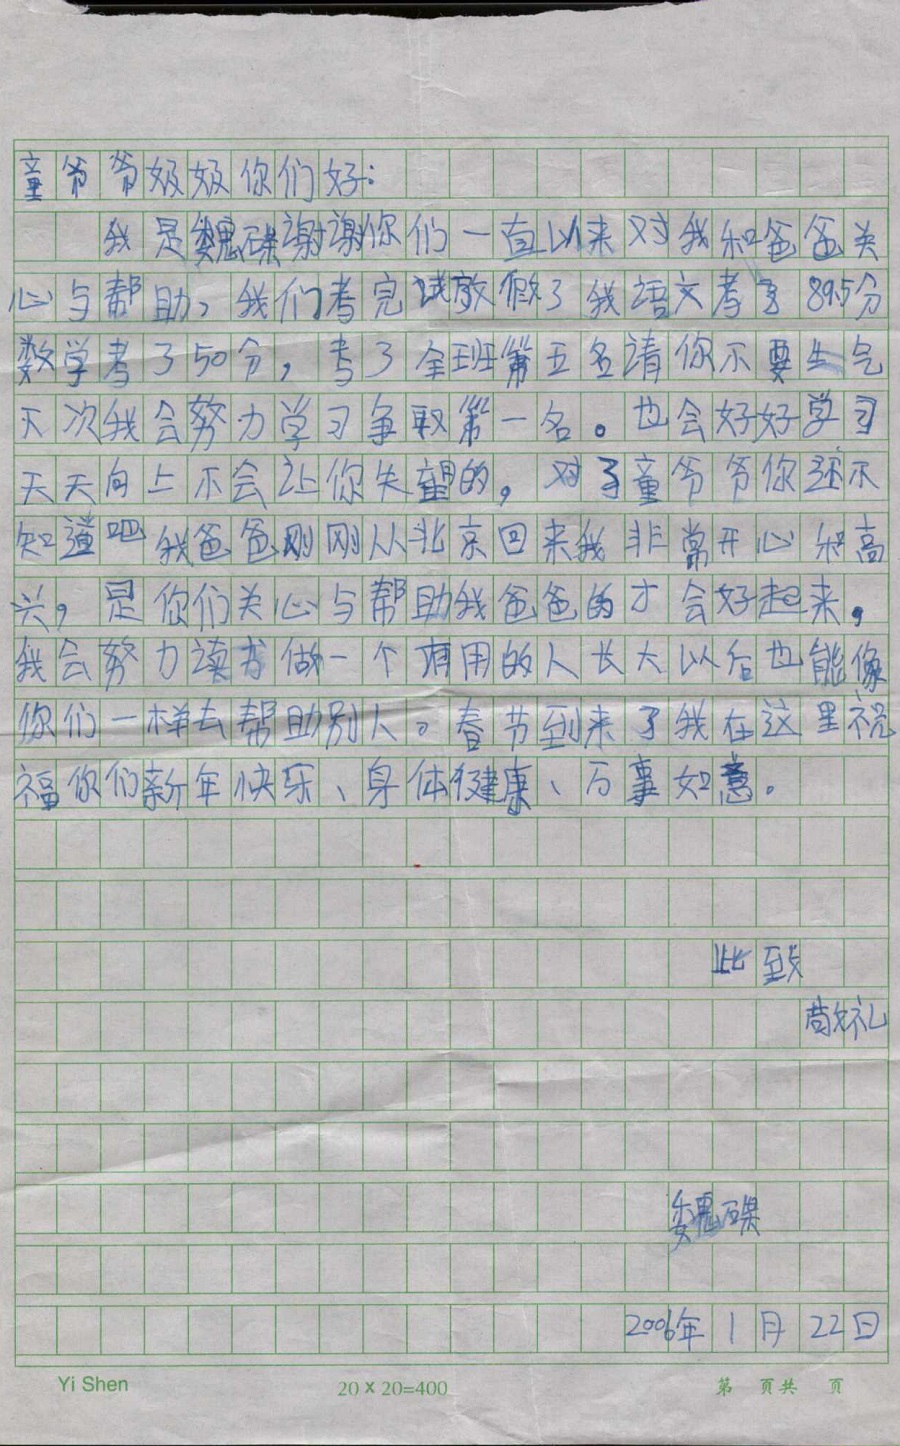 童爷爷奶奶你们好:
我是魏磙谢谢你们一直以来对我和爸爸关
心与帮助,我们考完试放假了我语文考了89.5分
数学考了50分,考了全班第五名请你不要生气
下次我会努力学习争取第一名。也会好好学习
天天向上不会让你失望的,对了童爷爷你还不
知道吧我爸爸刚刚从北京回来我非常开心和高
兴,是你们关心与帮助我爸爸的才会好起来,
我会努力读书做一个有用的人长大以后也能像
你们一样去帮助别人。春节到来了我在这里祝
福你们新年快乐、身体健康、万事如意。
此致
敬礼
魏磙
2006年1月22日
Yi Shen 20×20=400 第 页共 页